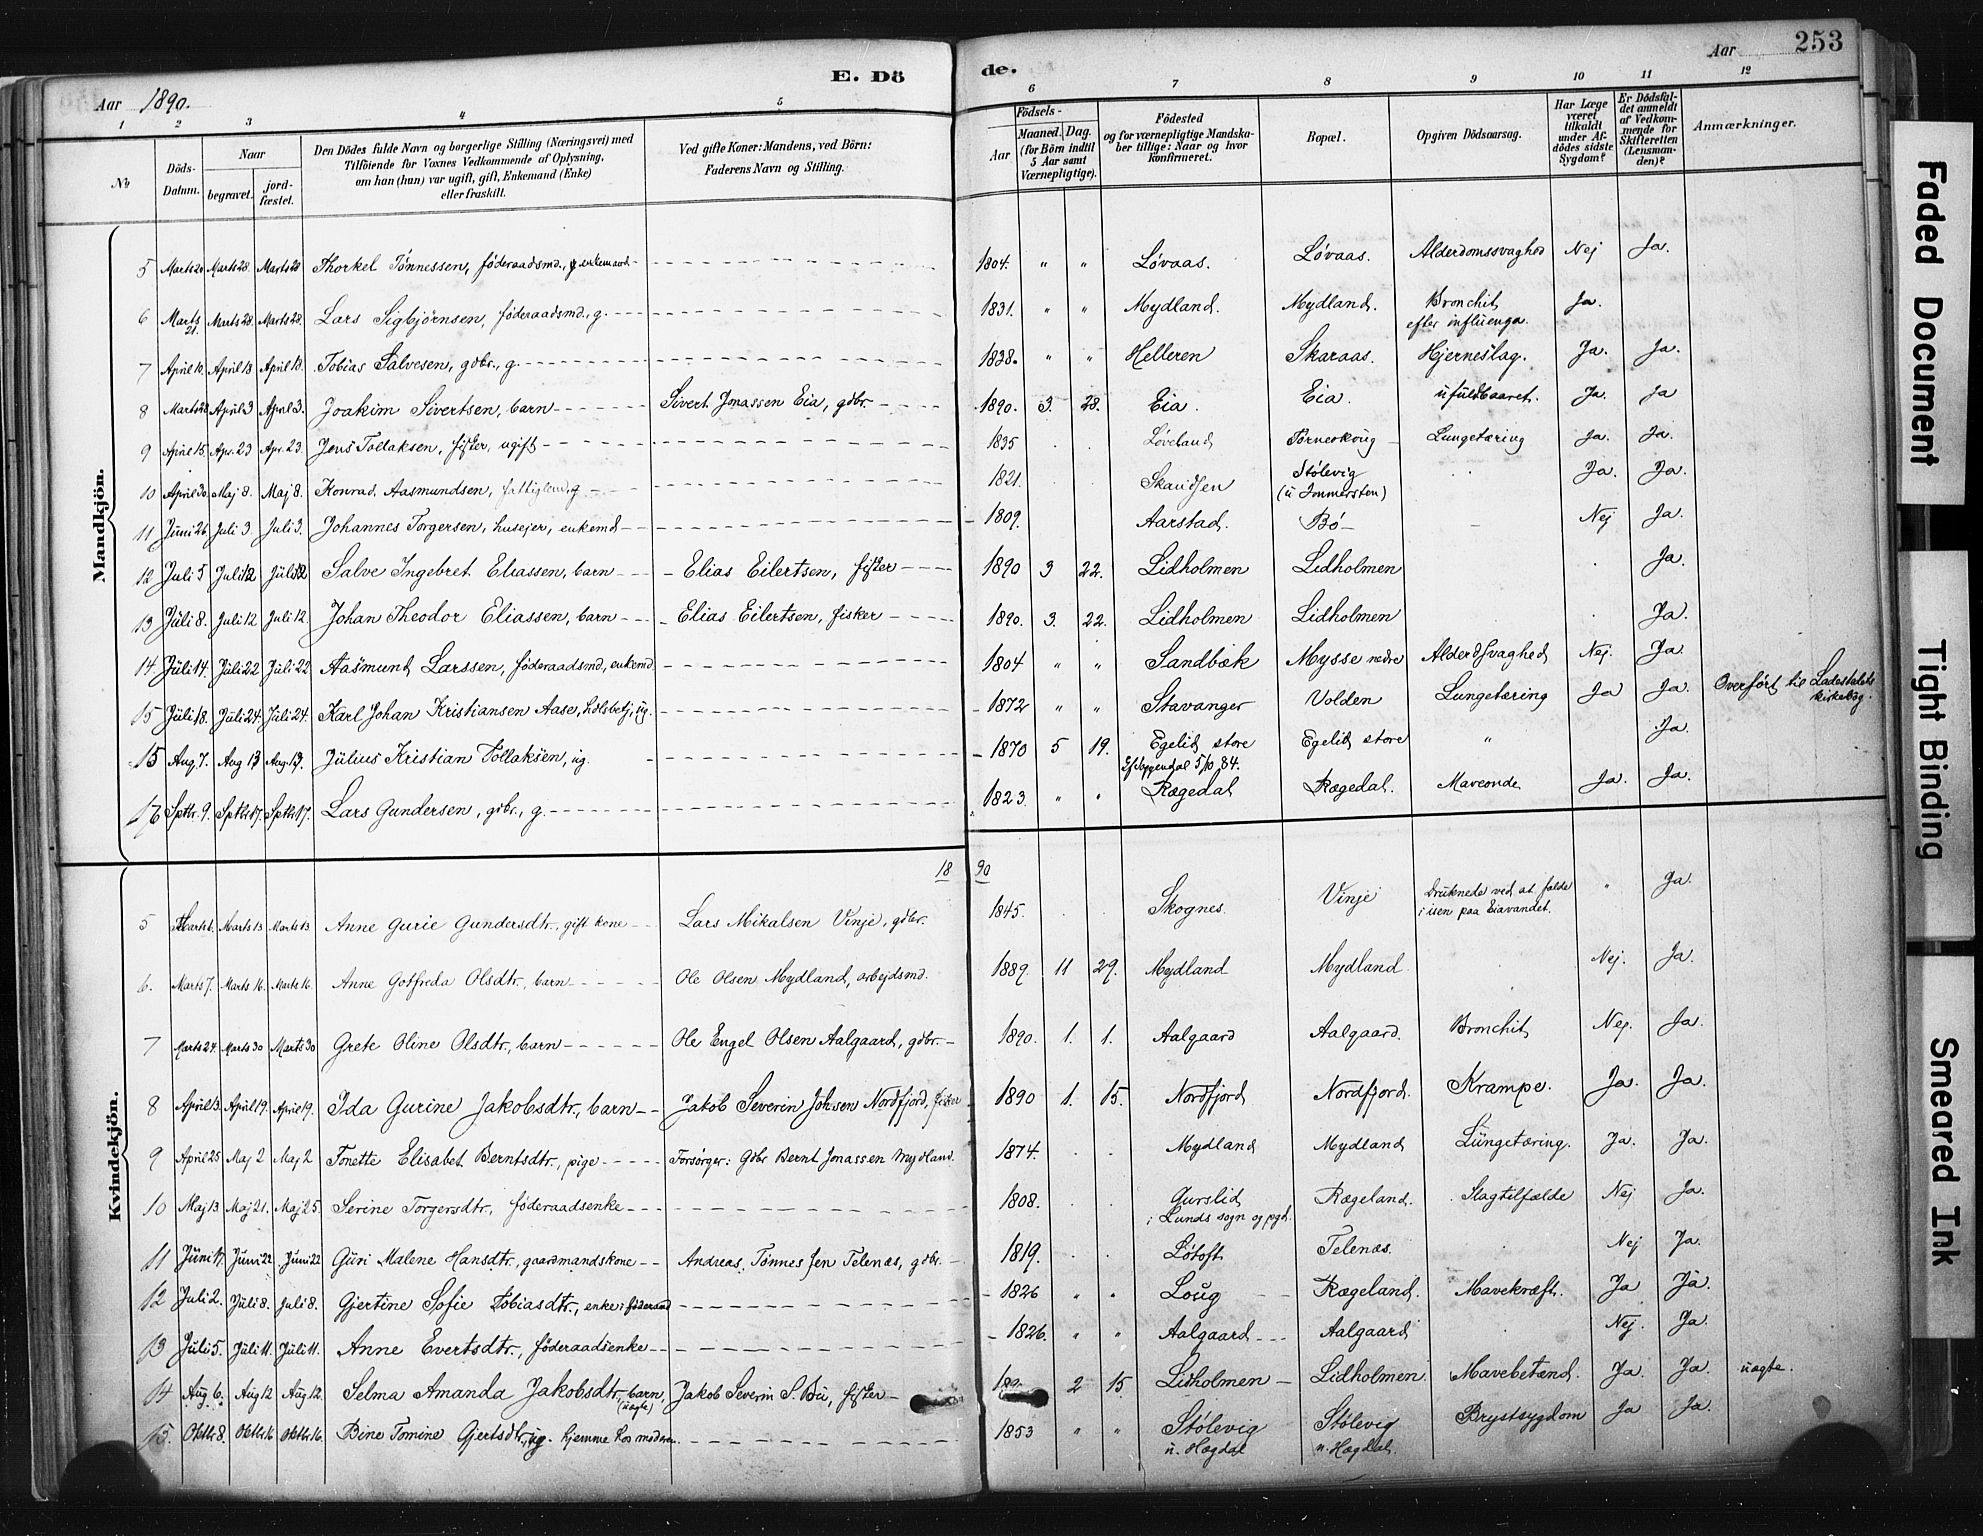 Aar 1890. E. Döde. Aar 253
1 2 3 4 5 6 7 8 9 10 11 12
No Döds-Datum. Naar begravet. jord-fæstet. Den Dödes fulde Navn og borgerlige Stilling (Næringsvei) med Tilföiende for Voxnes Vedkommende af Oplysning, om han (hun) var ugift, gift, Enkemand (Enke) eller fraskilt. Ved gifte Koner: Mandens, ved Börn: Faderens Navn og Stilling. Födsels- Aar Maaned. Dag. (for Börn indtil 5 Aar samt Værnepligtige). Födested og for værnepligtige Mandskaber tillige: Naar og hvor konfirmeret. Bopæl. Opgiven Dödsaarsag. Har Læge været tilkaldt under Afdödes sidste Sygdom? Er Dödsfaldet anmeldt af Vedkommende for Skifteretten (Lensmanden)? Anmærkninger.
Mandkjön.
5 Marts 20 Marts 28. Marts 28 Thorkel Tönnessen, föderaadsmd., enkemand 1804. " " Løvaas. Løvaas. Alderdomssvaghed Nej Ja.
6 Marts 21. Marts 28. Marts 28. Lars Sigbjörnsen, föderaadsmd., g. 1831. " " Mydland. Mydland. Bronchit efter influenza. Ja.
7 April 10. April 18 April 18. Tobias Salvesen, gdbr., g. 1838. " " Helleren Skaraas. Hjerneslag. Ja. Ja.
8 Marts 28 April 3 April 3. Joakim Sivertsen, barn Sivert Jonassen Eia, gdbr. 1890. 3. 28. Eia. Eia. ufuldbaaret. Ja. Ja
9 April 15. Apr. 23 Apr. 23. Jens Tollaksen, fisker, ugift 1835 Løveland Lungetæring Ja. Ja.
10 April 30. Maj 8. Maj 8. Konrad Aasmundsen, fattiglem, g 1821. Stølevig (u Immersten) Ja. Ja.
11 Juni 26. Juli 3 Juli 3. Johannes Torgersen, husejer, enkemd 1809. Aarstad. Bö Nej Ja.
12 Juli 5 Juli 12 Juli 12 Salve Ingebret Eliassen, barn Elias Eilertsen, fisker 1890 3 22. Lidholmen Lidholmen Ja.
13 Juli 8. Juli 12 Juli 12. Johan Theodor Eliassen, barn Elias Eilertsen, fisker 1890. 3. 22. Lidholmen Lidholmen Ja.
14 Juli 14. Juli 22 Juli 22 Aasmund Larssen, föderaadsmd, enkemd 1804 " " Sandbæk Mysse nedre Alderdsvaghed Nej. Ja.
15 Juli 18. Juli 24. Juli 24. Karl Johan Kristiansen Aase, ug. 1872 " " Stavanger Volden Lungetæring Ja Ja. Overført til Ladestedets kirkebog.
15 Aug. 7. Aug 13 Aug. 13. Julius Kristian Tollaksen, ug. 1870 5 19. Egelid store 5/10 84. Egelid store " Ja.
16 Sptbr. 9. Sptbr 17. Sptbr 17. Lars Gundersen, gdbr., g. 1823. " " Rægedal Rægedal. Ja. Ja.
Kvindekjön.
1890
5 Marts 6. Marts 13 Marts 13 Anne Gurie Gundersdtr., gift kone Lars Mikalsen Vinje, gdbr. 1845. Skognes. Vinje Druknede ved at falde i isen paa Eiavandet. " Ja.
6. Marts 7. Marts 16. Marts 16. Anne Gotfreda Olsdtr., barn Ole Olsen Mydland, arbejdsmd. 1889. 11 29. Mydland Mydland Nej. Ja.
7 Marts 24. Marts 30 Marts 30 Grete Oline Olsdtr., barn Ole Engel Olsen Aalgaard, gdbr. 1890. 1. 1. Aalgaard Aalgaard. Bronchit Nej. Ja.
8 April 13. April 19. April 19. Ida Gurine Jakobsdtr., barn Jakob Severin Johsen Nordfjord, fisker 1890 1. 15. Nordfjord Nordfjord. Krampe. Ja. Ja.
9 April 25 Maj 2 Maj 2 Tonette Elisabet Berntsdtr., pige Forsørger: Gdbr Bernt Jonassen Mydland. 1874. Mydland Mydland Lungetæring. Ja. Ja.
10 Maj 13 Maj 21. Maj 25 Serine Torgersdtr. föderaadsenke 1808. Gurslid i Lunds sogn og pgd. Rægeland. Slagtilfælde Nej Ja.
11 Juni 17. Juni 22 Juni 22 Guri Malene Hansdtr., gaardmandskone Andreas Tønnes Jen Telenæs, gdbr. 1819. Løtoft Telenæs. Nej Ja.
12 Juli 2. Juli 8. Juli 8. Gjertine Sofie Tobiasdtr., enke, föderaad 1826 " " Loug Rægeland. Mavekræft. Ja Ja.
13 Juli 5. Juli 11. Juli 11. Anne Evertsdtr., föderaadsenke 1826. " " Aalgaard Aalgaard Nej. Ja.
14 Aug. 6. Aug 12 Aug 12. Selma Amanda Jakobsdtr., barn, (uægte) Jakob Severin S. Bu, fisker 2 15. Lidholmen Lidholmen. Mavebetænd. Ja. Ja. uægte.
15. Oktbr 8. Oktbr 16 Oktbr 16. Bine Tomine Gjertsdtr, ug. hjemme hos moderen. 1853 " " Stølevig u. Hægdal Stølevig u. Hægdal. Brystsygdom Ja Ja.
Faded Document
Tight Binding
Smeared Ink